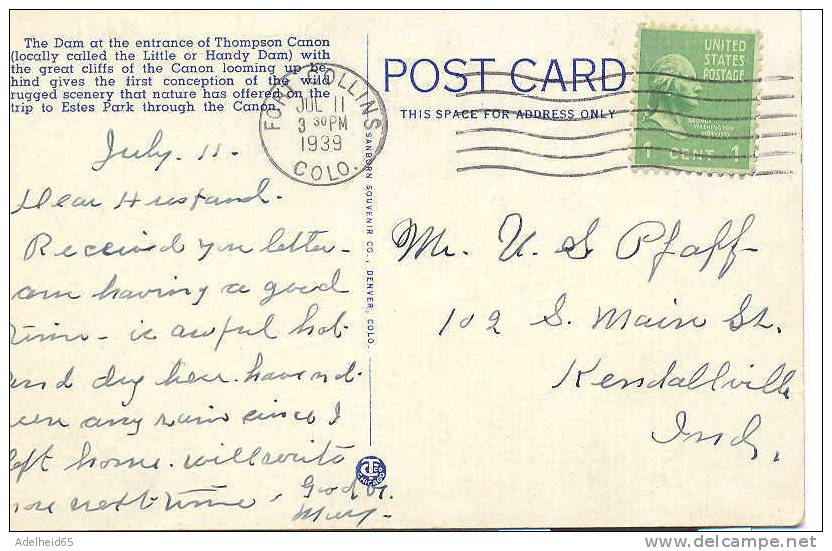 The Dam at the entrance of Thompson Canon
(locally called the Little or Handy Dam) with
the great cliffs of the Canon looming up be-
hind gives the first conception of the wild
rugged scenery that nature has offered on the
trip to Estes Park through the Canon.
POST CARD
THIS SPACE FOR ADDRESS ONLY
UNITED
STATES
POSTAGE
GEORGE
WASHINGTON
1 CENT 1
FORT COLLINS
JUL 11
3 30 PM
1939
COLO.
SANBORN SOUVENIR CO., DENVER, COLO.
July. 11.
Dear Husband.
Received you letter-
am having a good
time - is awful hot.
and dry here. have not.
seen any rain since I
left home. will write
more next time. Good by.
Mary-
Mr. U S Pfaff
102 S. Main St.
Kendallville
Ind.
CHICAGO
© Adelheid65
delcampe.net